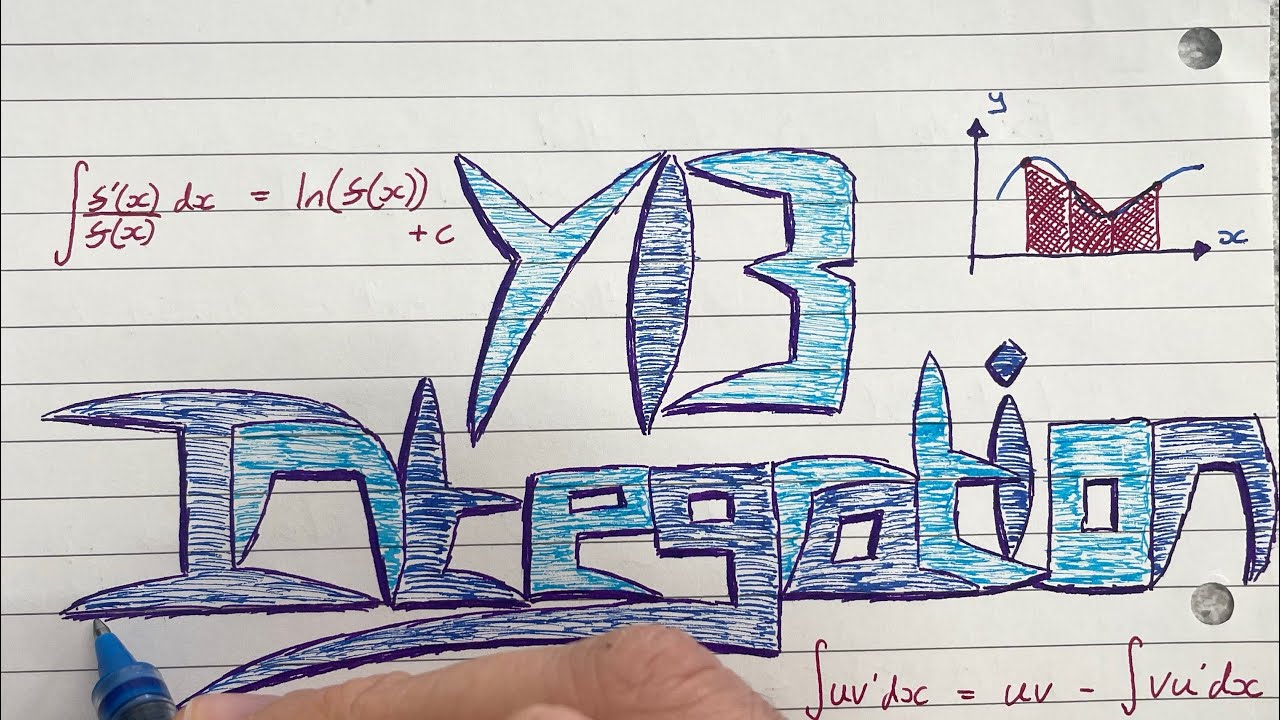 y
∫ f'(x)/f(x) dx = ln(f(x)) + c
Y13
x
Integration
∫uv'dx = uv - ∫vu'dx